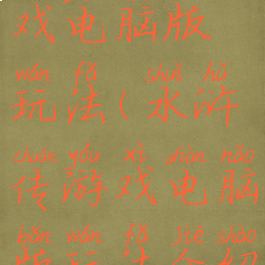 戏电脑版
wán fǎ shuǐ hǔ
玩法(水浒
chuán yóu xì diàn nǎo
传游戏电脑
bǎn wán fǎ jiè shào
版玩法介绍